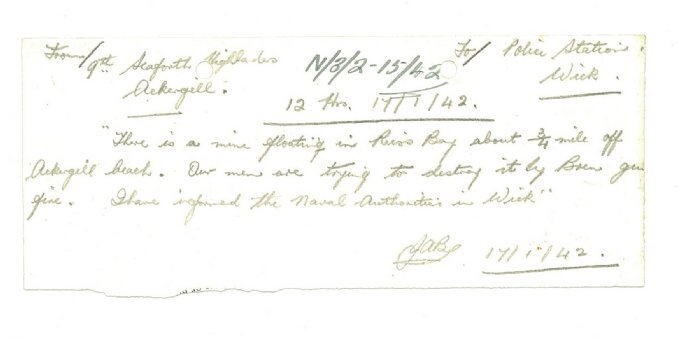 From/ 9th Seaforth Highlanders N/3/2-15/42 To/ Police Station
Ackergill. Wick.
12 Hrs. 17/1/42.
"There is a mine floating in Reiss Bay about 3/4 mile off
Ackergill beach. Our men are trying to destroy it by Bren gun
fire. I have informed the Naval Authorities in Wick"
17/1/42.